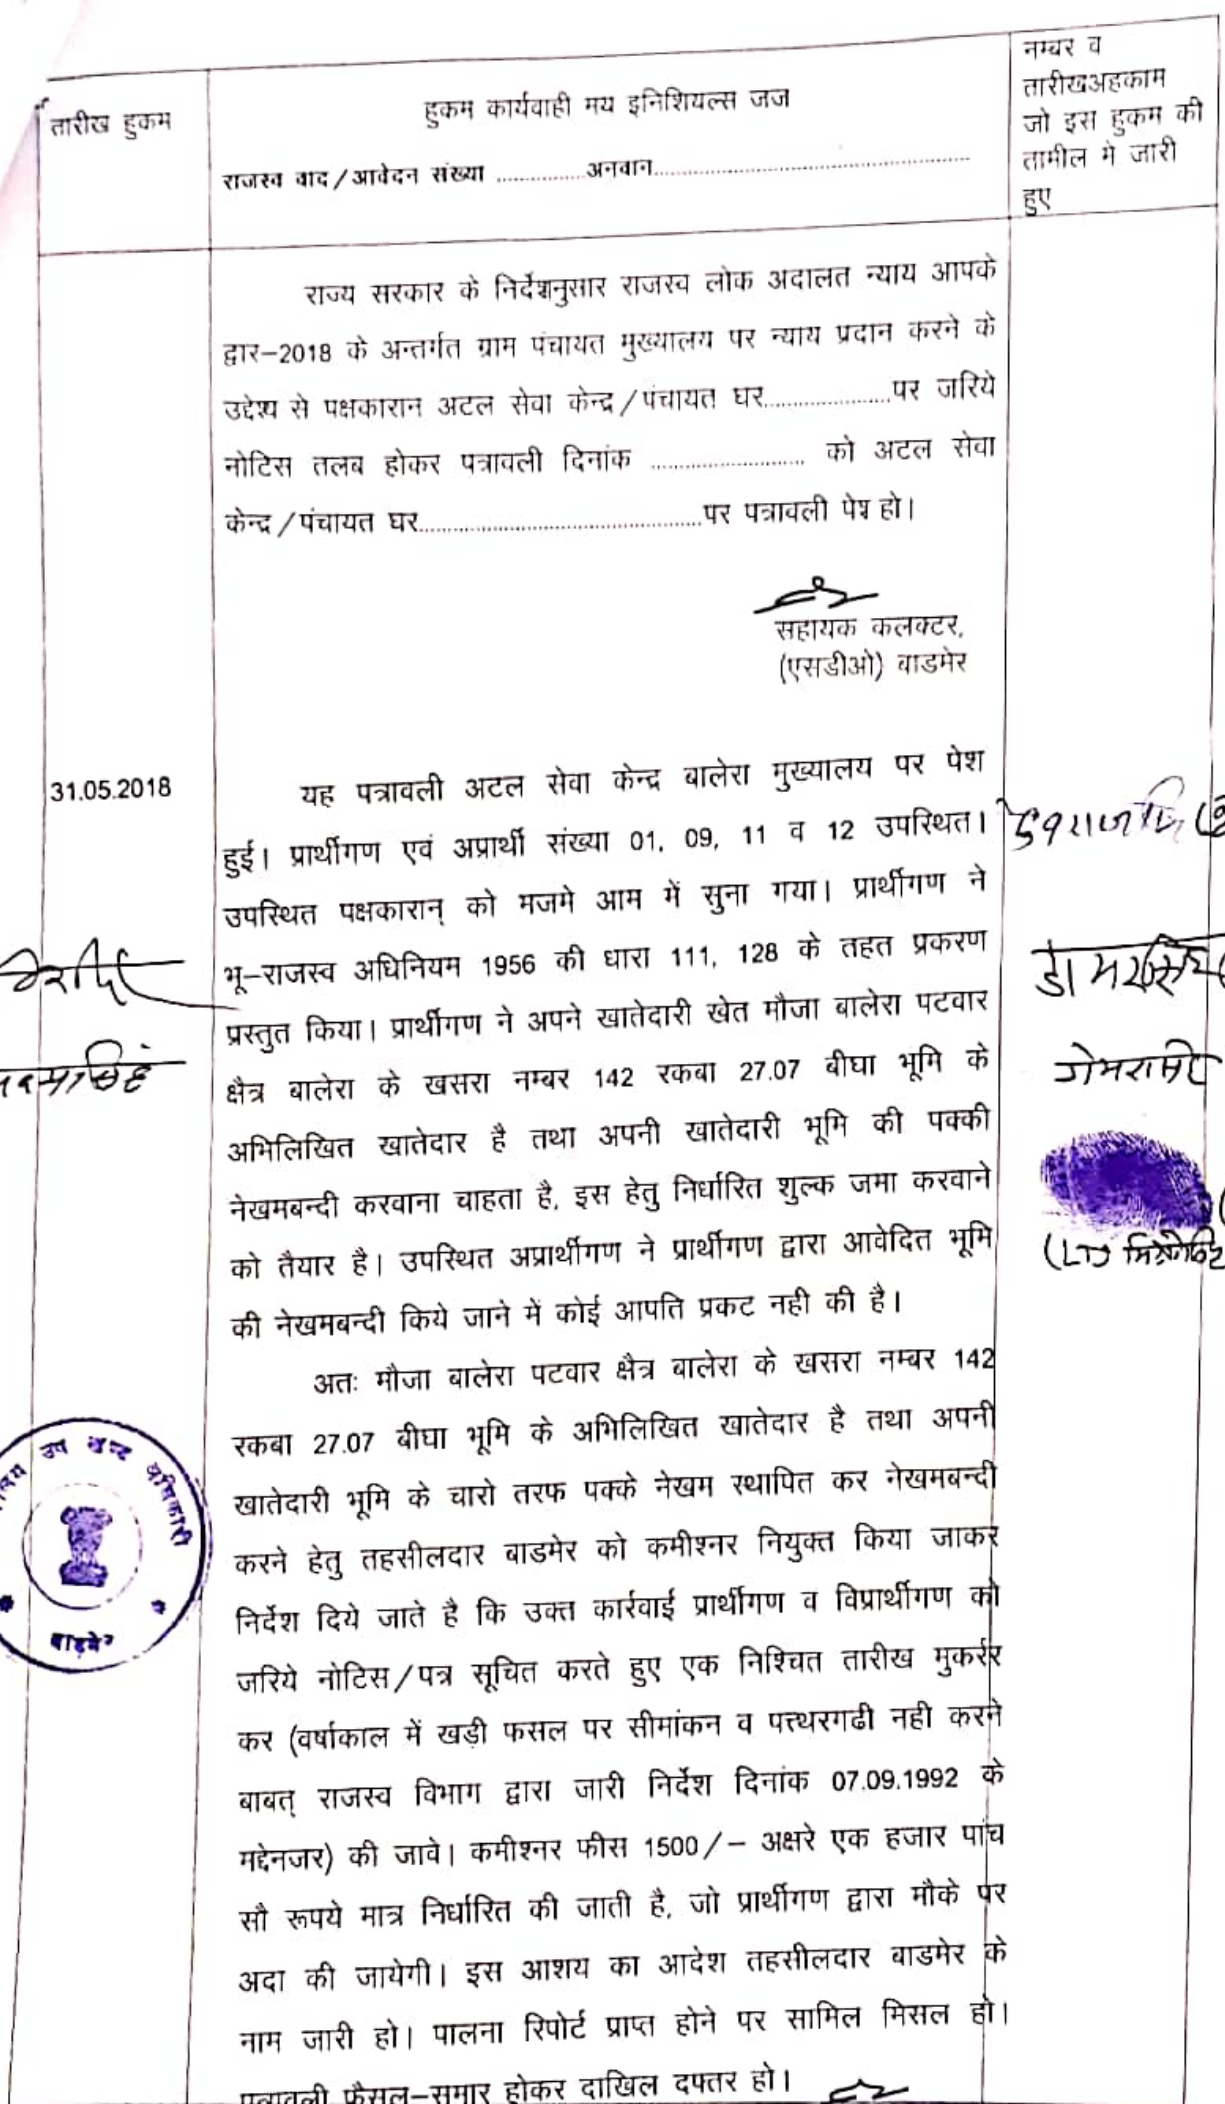 तारीख हुकम
हुकम कार्यवाही मय इनिशियल्स जज
राजस्व वाद/आवेदन संख्या ................अनवान..........................................................
नम्बर व
तारीखअहकाम
जो इस हुकम की
तामील मे जारी
हुए
राज्य सरकार के निर्देशनुसार राजस्व लोक अदालत न्याय आपके
द्वार–2018 के अन्तर्गत ग्राम पंचायत मुख्यालय पर न्याय प्रदान करने के
उद्देश्य से पक्षकारान अटल सेवा केन्द्र/पंचायत घर......................पर जरिये
नोटिस तलब होकर पत्रावली दिनांक ........................... को अटल सेवा
केन्द्र/पंचायत घर.................................................पर पत्रावली पेश हो।
सहायक कलक्टर,
(एसडीओ) बाडमेर
31.05.2018
यह पत्रावली अटल सेवा केन्द्र बालेरा मुख्यालय पर पेश
हुई। प्रार्थीगण एवं अप्रार्थी संख्या 01, 09, 11 व 12 उपस्थित।
उपस्थित पक्षकारान् को मजमे आम में सुना गया। प्रार्थीगण ने
भू–राजस्व अधिनियम 1956 की धारा 111, 128 के तहत प्रकरण
प्रस्तुत किया। प्रार्थीगण ने अपने खातेदारी खेत मौजा बालेरा पटवार
क्षैत्र बालेरा के खसरा नम्बर 142 रकबा 27.07 बीघा भूमि के
अभिलिखित खातेदार है तथा अपनी खातेदारी भूमि की पक्की
नेखमबन्दी करवाना चाहता है, इस हेतु निर्धारित शुल्क जमा करवाने
को तैयार है। उपस्थित अप्रार्थीगण ने प्रार्थीगण द्वारा आवेदित भूमि
की नेखमबन्दी किये जाने में कोई आपति प्रकट नही की है।
अतः मौजा बालेरा पटवार क्षैत्र बालेरा के खसरा नम्बर 142
रकबा 27.07 बीघा भूमि के अभिलिखित खातेदार है तथा अपनी
खातेदारी भूमि के चारो तरफ पक्के नेखम स्थापित कर नेखमबन्दी
करने हेतु तहसीलदार बाडमेर को कमीश्नर नियुक्त किया जाकर
निर्देश दिये जाते है कि उक्त कार्रवाई प्रार्थीगण व विप्रार्थीगण को
जरिये नोटिस/पत्र सूचित करते हुए एक निश्चित तारीख मुकर्रर
कर (वर्षाकाल में खड़ी फसल पर सीमांकन व पत्थरगढी नही करने
बाबत् राजस्व विभाग द्वारा जारी निर्देश दिनांक 07.09.1992 के
मद्देनजर) की जावे। कमीश्नर फीस 1500/– अक्षरे एक हजार पांच
सौ रूपये मात्र निर्धारित की जाती है, जो प्रार्थीगण द्वारा मौके पर
अदा की जायेगी। इस आशय का आदेश तहसीलदार बाडमेर के
नाम जारी हो। पालना रिपोर्ट प्राप्त होने पर सामिल मिसल हो।
पत्रावली फैसल–समार होकर दाखिल दफ्तर हो।
उप खण्ड अधिकारी
बाड़मेर